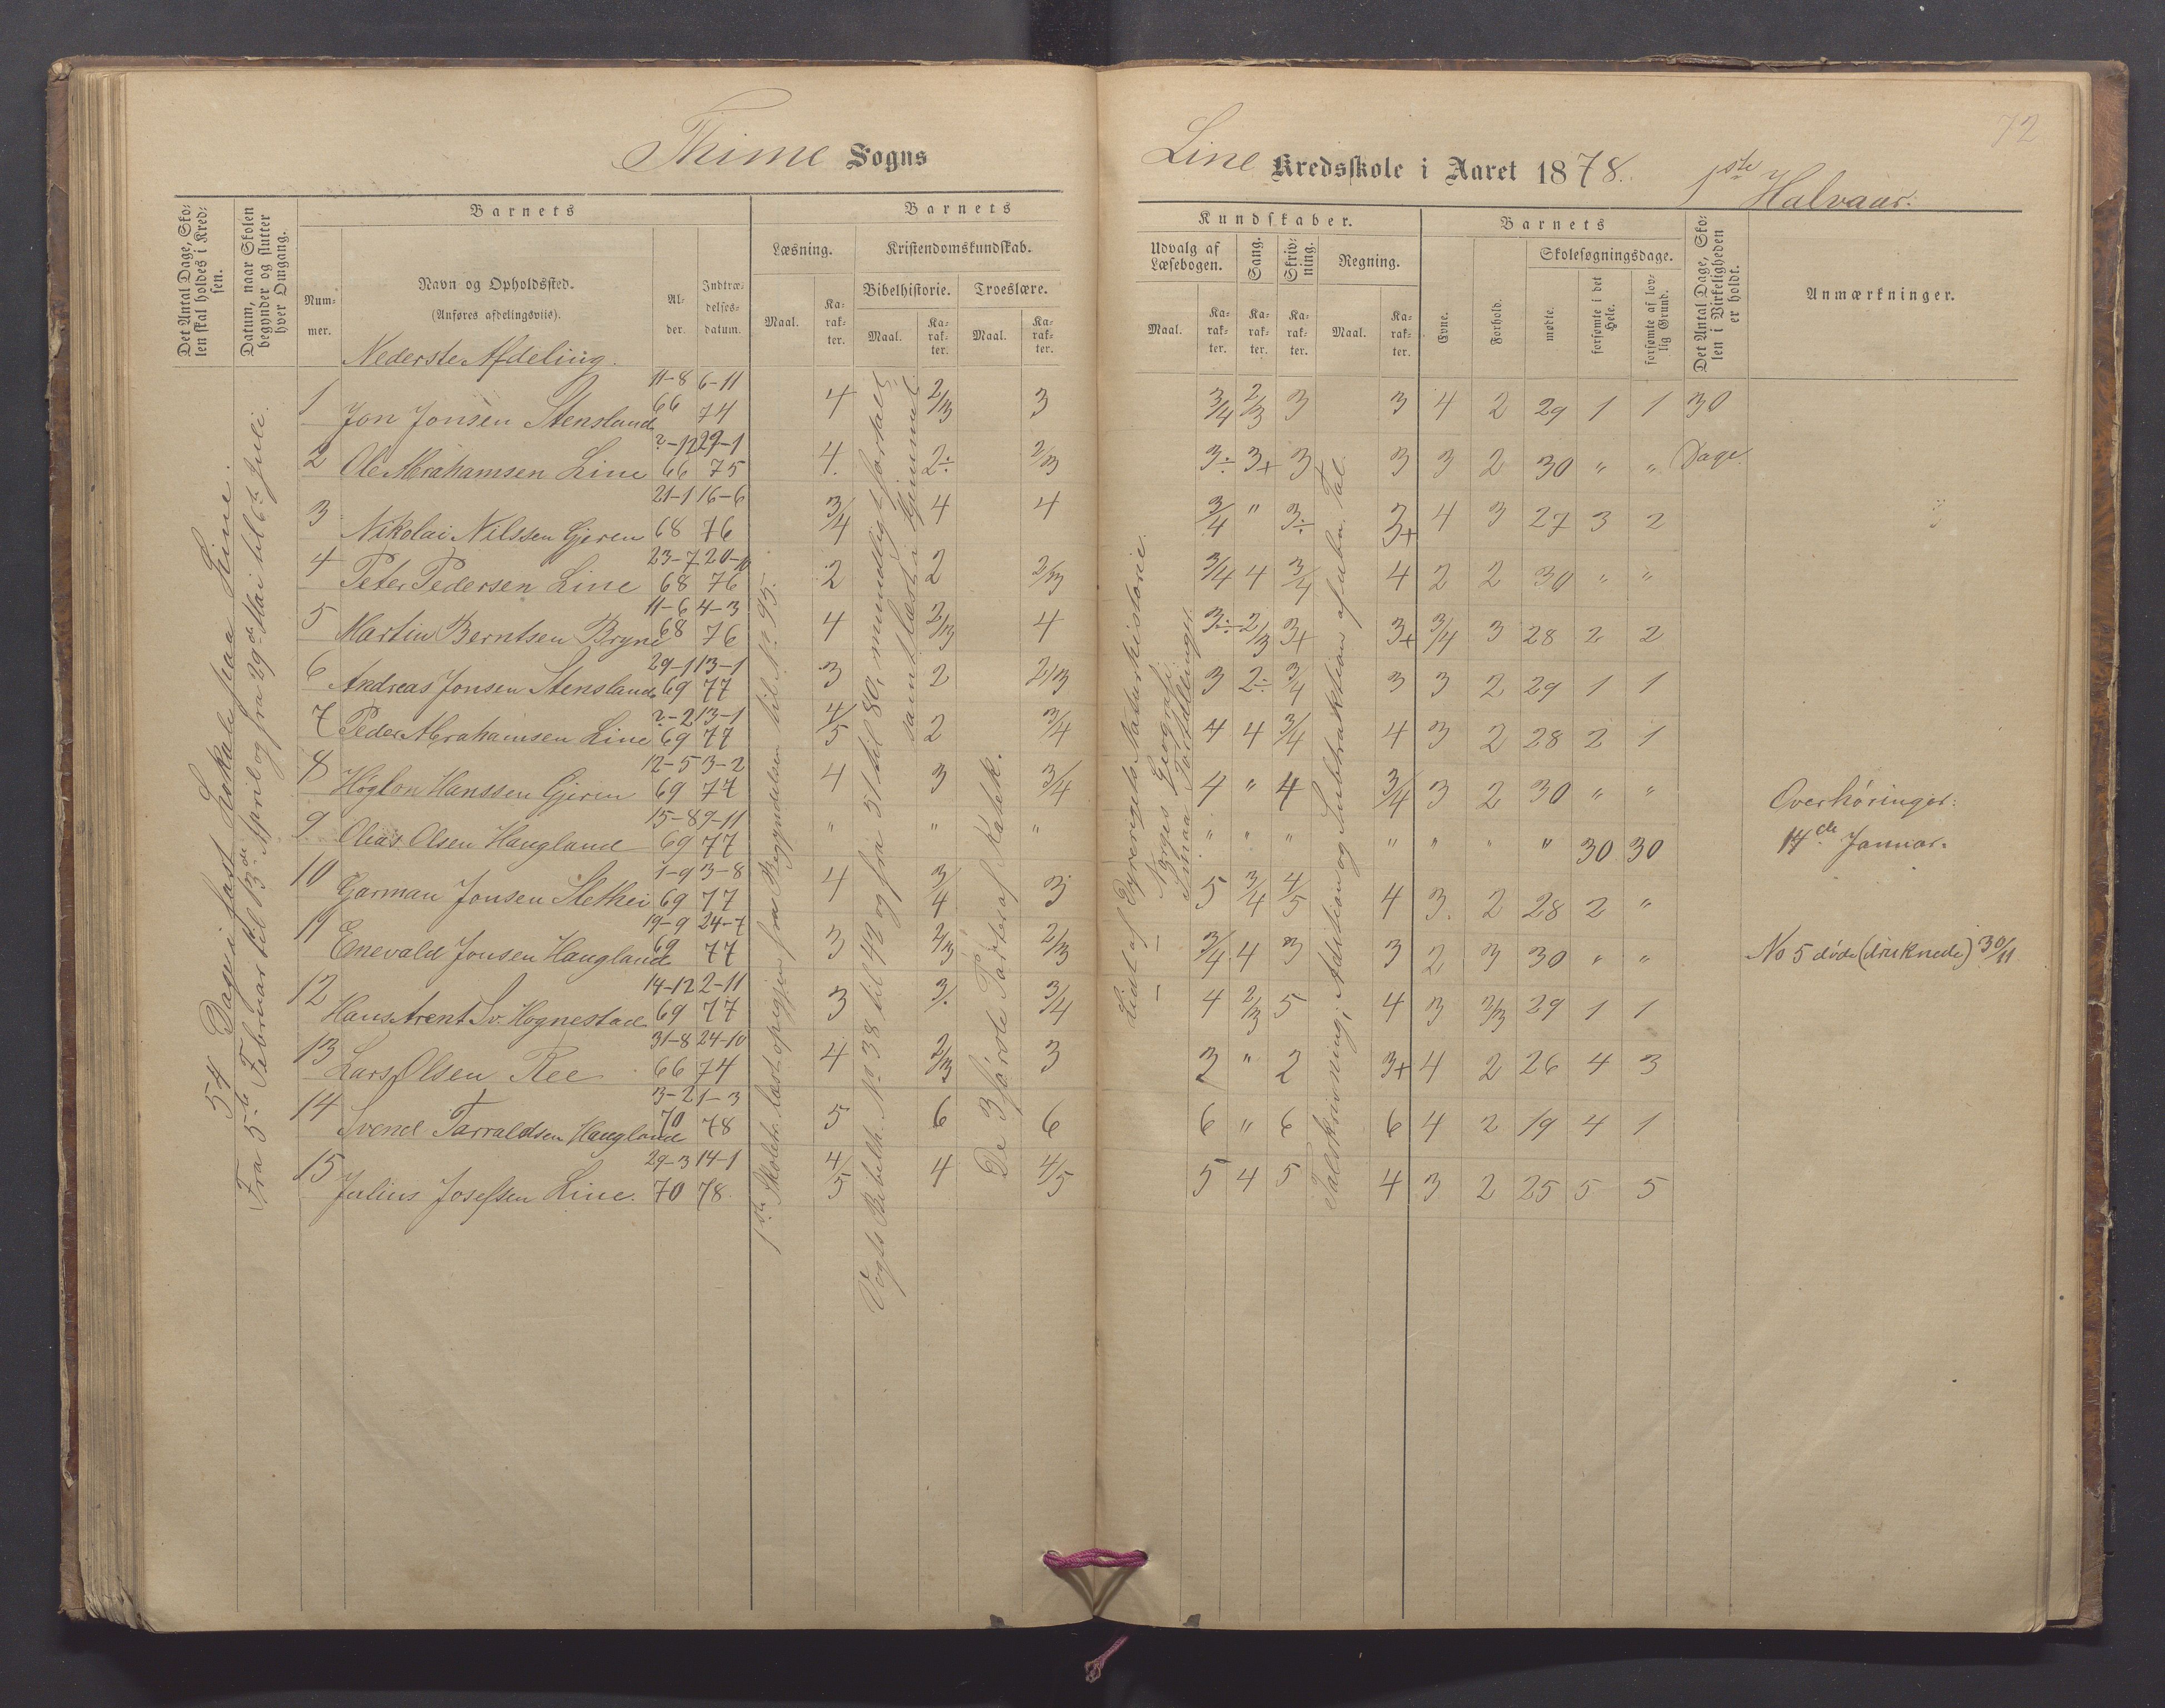 72
Thime Sogns
Line Kredsskole i Aaret 1878. 1ste Halvaar.
Det Antal Dage, Skolen skal holdes i Kredsen.
Datum, naar Skolen begynder og slutter hver Omgang.
Barnets
Nummer.
Navn og Opholdssted.
(Anføres afdelingsviis).
Alder.
Indtrædelses-datum.
Barnets
Læsning.
Maal.
Karakter.
Kristendomskundskab.
Bibelhistorie.
Maal.
Karakter.
Troeslære.
Maal.
Karakter.
Kundskaber.
Udvalg af Læsebogen.
Maal.
Karakter.
Sang.
Karakter.
Skrivning.
Karakter.
Regning.
Maal.
Karakter.
Barnets
Evne.
Forhold.
Skolesøgningsdage.
mødte.
forsømte i det Hele.
forsømte af lovlig Grund.
Det Antal Dage, Skolen i Virkeligheden er holdt.
Anmærkninger.
Nederste Afdeling.
54 Dage i fast Lokale paa Line.
Fra 5te Februar til 13de April og fra 29de Mai til 6te Juli.
1ste Skoletr. læst opigjen fra Begyndelsen til No 95.
Vogts Bibelh. No 38 til 49 og fra 51 til 80, mundtligt fortalt
samt læst i Hjemmet.
De 3 første Parter af Katek.
Lidt af Dyrerigets Naturhistorie.
— Norges Geografi.
— Smaa Fortællinger.
Talskrivning; Addition og Subtraktion af ubn. Tal.
1 Jon Jonsen Stensland 11-8 66 6-11 74 4 2/3 3 3/4 2/3 3 3 4 2 29 1 1 30
2 Ole Abrahamsen Line ?-12 66 29-1 75 4. 2÷ 2/3 3÷ 3+ 3 3 3 2 30 " " Dage.
3 Nikolai Nilssen Gjeren 21-1 68 16-6 76 3/4 4 4 3/4 " 3÷ 3+ 4 3 27 3 2
4 Peter Pedersen Line 23-7 68 20-10 76 2 2 2/3 3/4 4 3/4 4 2 2 30 " "
5 Martin Berntsen Bryne 11-6 68 4-3 76 4 2/3 4 3÷ 2/3 3+ 3+ 3/4 3 28 2 2
6 Andreas Jonsen Stensland 29-1 69 13-1 77 3 2 2/3 3 2÷ 3/4 3 3 2 29 1 1
7 Peder Abrahamsen Line ?-2 69 13-1 77 4/5 2 3/4 4 4 3/4 4 3 2 28 2 1
8 Høglon Hanssen Gjeren 12-5 69 3-2 77 4 3 3/4 4 " 4 3/4 3 2 30 " " Overhøringer:
9 Olias Olsen Haugland 15-8 69 9-11 77 " " " " " " " " " " 30 30 14de Januar.
10 Garman Jonsen Slethei 1-9 69 3-8 77 4 3/4 3 5 3/4 4/5 4 3. 2 28 2 "
11 Enevald Jonsen Haugland 19-9 69 24-7 77 3 2/3 2/3 3/4 4 3 3 2 3 30 " " No 5 døde (druknede) 30/11
12 Hans Arent Sv. Hognestad 14-12 69 2-11 77 3 3. 3/4 4 2/3 5 4 3 2/3 29 1 1
13 Lars Olsen Ree 31-8 66 24-10 74 4 2/3 3 3 " 2 3+ 4 2 26 4 3
14 Svend Tarraldsen Haugland 3-2 70 1-3 78 5 6 6 6 " 6 6 4 2 19 4 1
15 Julius Josefsen Line. 29-3 70 14-1 78. 4/5 4 4/5 5 4 5 4 3 2 25 5 5